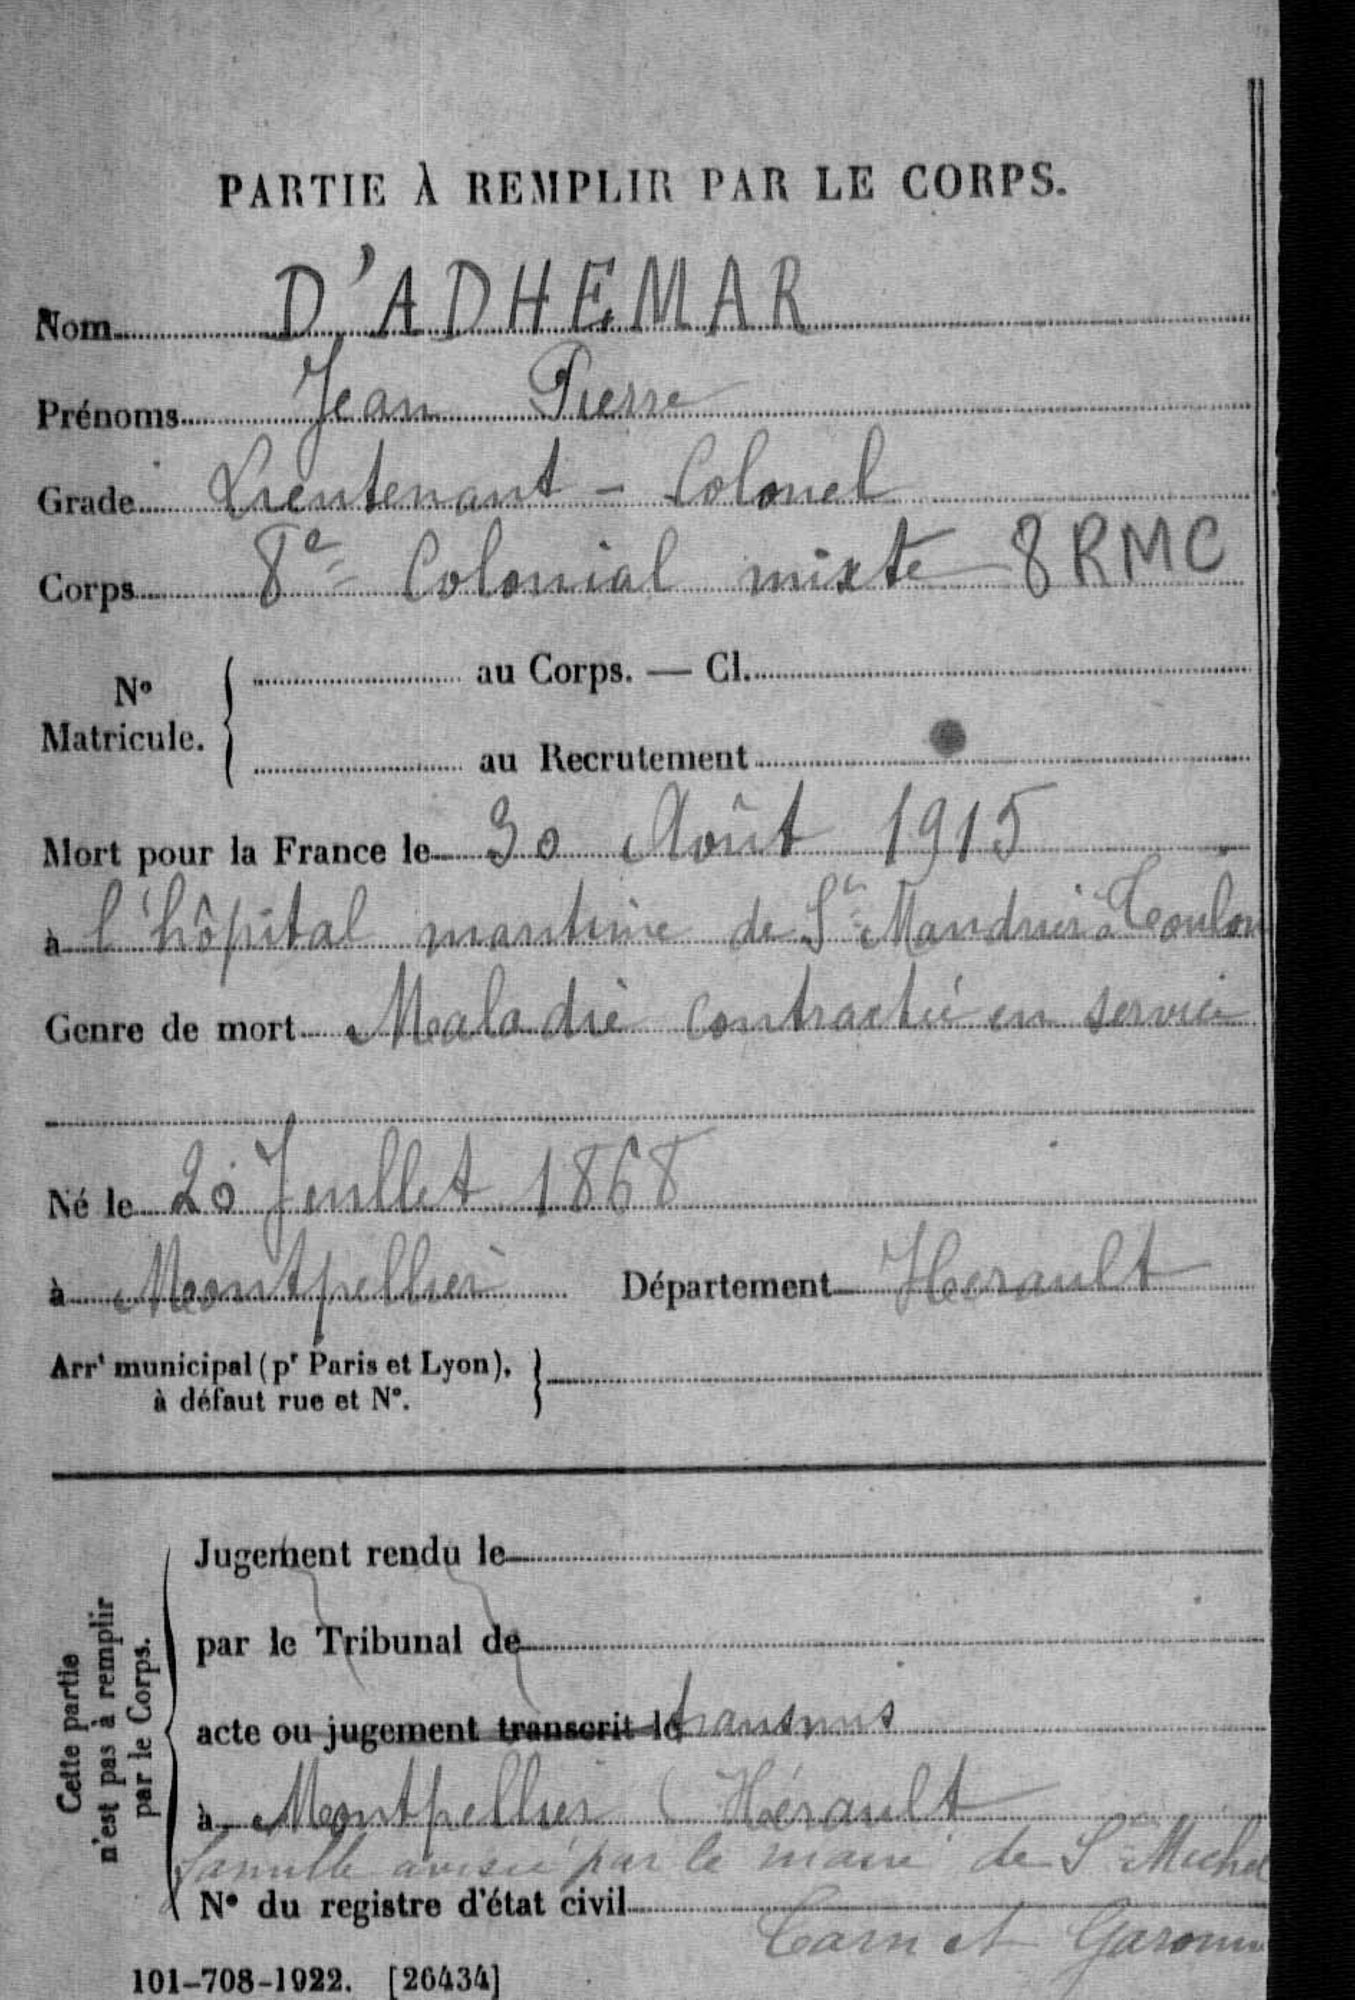 PARTIE À REMPLIR PAR LE CORPS.
Nom D'ADHEMAR
Prénoms Jean Pierre
Grade Lieutenant - Colonel
Corps 8e Colonial mixte 8 RMC
N° Matricule. { au Corps. — Cl.
au Recrutement
Mort pour la France le 30 Août 1915
à l'hôpital maritime de St Mandrier à Toulon
Genre de mort Maladie contractée en service
Né le 20 Juillet 1868
à Montpellier Département Hérault
Arrt municipal (pr Paris et Lyon), à défaut rue et N°. }
Cette partie n'est pas à remplir par le Corps.
Jugement rendu le
par le Tribunal de
acte ou jugement transcrit le transmis
à Montpellier (Hérault
famille avisée par le maire de St Michel
N° du registre d'état civil
Tarn et Garonne
101-708-1922. [26434]